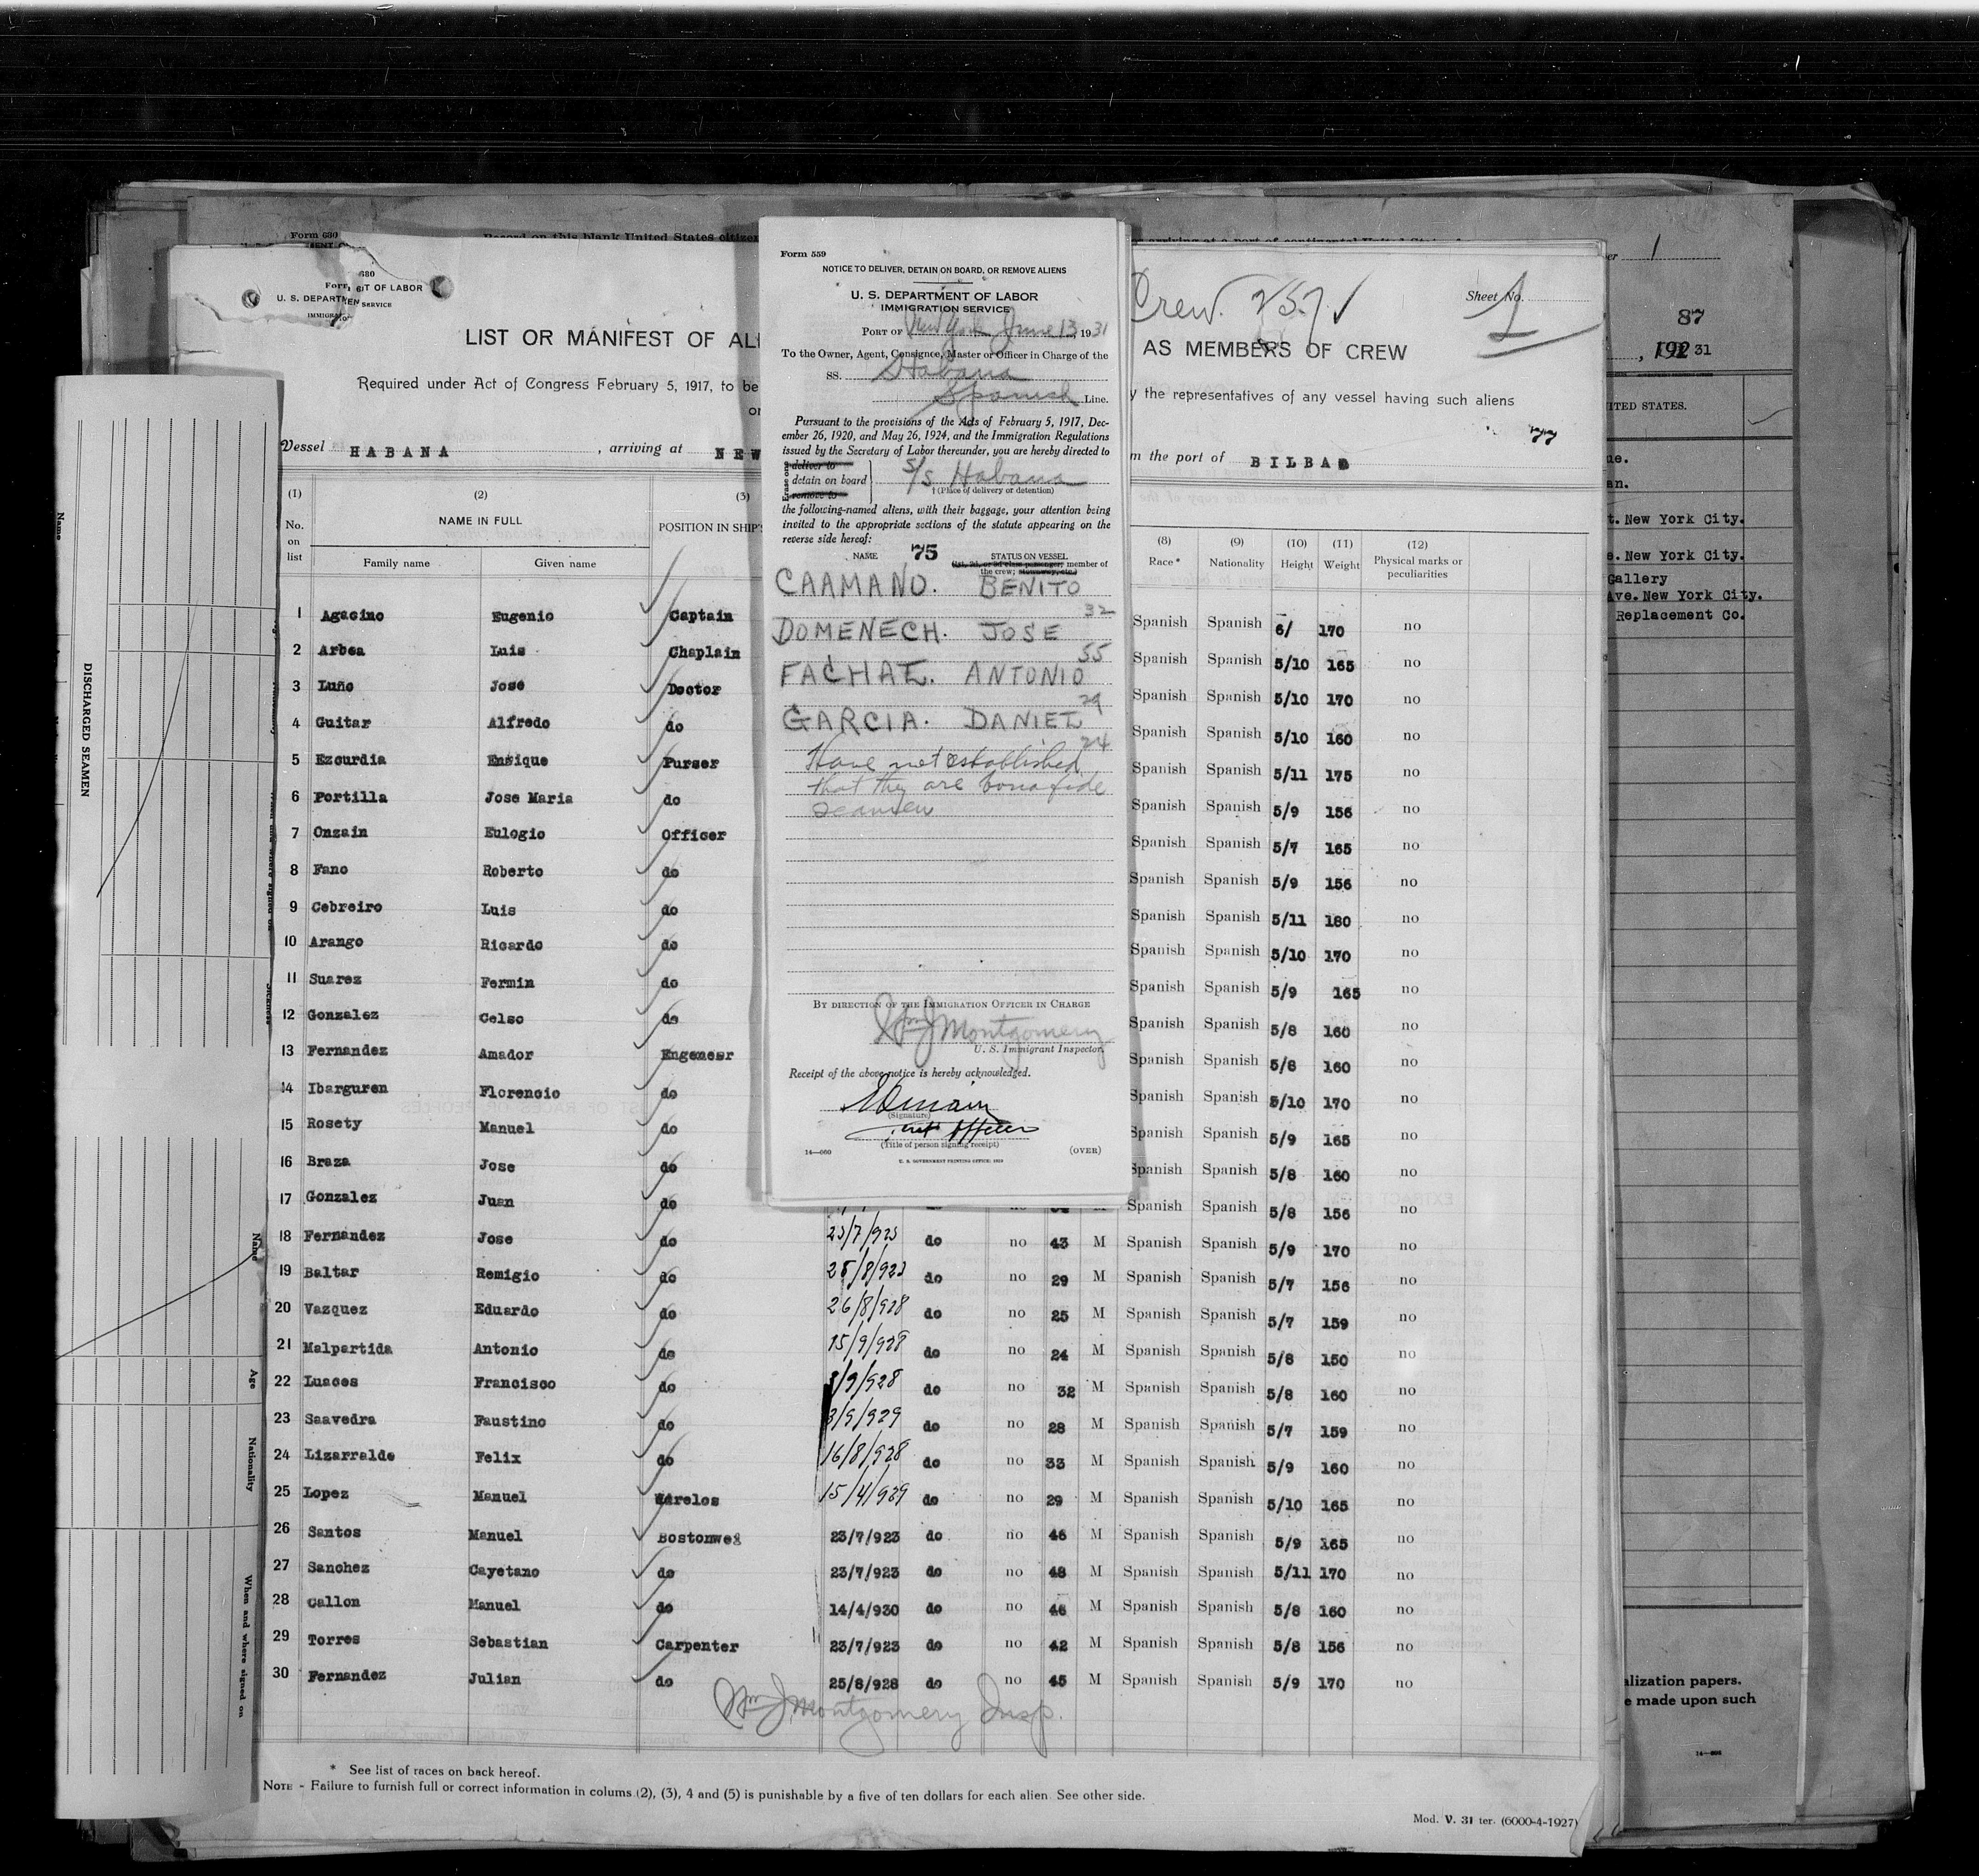 Form 630
Record on this blank United States citizen
arriving at a port of continental United States
1
87
, 192 31
ITED STATES.
ue.
an.
t. New York City.
e. New York City.
Gallery
Ave. New York City.
Replacement Co.
alization papers.
e made upon such
680
U. S. DEPARTMEN T OF LABOR
SERVICE
LIST OR MANIFEST OF ALI
AS MEMBERS OF CREW
Crew. 257 √
Sheet No. 1
Required under Act of Congress February 5, 1917, to be
y the representatives of any vessel having such aliens
77
Vessel HABANA , arriving at NEW
m the port of BILBAO
(1) (2) (3) (8) (9) (10) (11) (12)
No. on list NAME IN FULL POSITION IN SHIP'S Race* Nationality Height Weight Physical marks or peculiarities
Family name Given name
1 Agacino Eugenio Captain Spanish Spanish 6/ 170 no
2 Arbea Luis Chaplain Spanish Spanish 5/10 165 no
3 Luño José Doctor Spanish Spanish 5/10 170 no
4 Guitar Alfredo do Spanish Spanish 5/10 160 no
5 Ezcurdia Enrique Purser Spanish Spanish 5/11 175 no
6 Portilla Jose Maria do Spanish Spanish 5/9 156 no
7 Onzain Eulogio Officer Spanish Spanish 5/7 165 no
8 Fano Roberto do Spanish Spanish 5/9 156 no
9 Cebreiro Luis do Spanish Spanish 5/11 180 no
10 Arango Ricardo do Spanish Spanish 5/10 170 no
11 Suarez Fermin do Spanish Spanish 5/9 165 no
12 Gonzalez Celso do Spanish Spanish 5/8 160 no
13 Fernandez Amador Engeneer Spanish Spanish 5/8 160 no
14 Ibarguren Florencio do Spanish Spanish 5/10 170 no
15 Rosety Manuel do Spanish Spanish 5/9 165 no
16 Braza Jose do Spanish Spanish 5/8 160 no
17 Gonzalez Juan do Spanish Spanish 5/8 156 no
18 Fernandez Jose do 23/7/923 do no 43 M Spanish Spanish 5/9 170 no
19 Baltar Remigio do 25/8/923 do no 29 M Spanish Spanish 5/7 156 no
20 Vazquez Eduardo do 26/8/928 do no 25 M Spanish Spanish 5/7 159 no
21 Malpartida Antonio do 15/9/928 do no 24 M Spanish Spanish 5/8 150 no
22 Luaces Francisco do /9/928 do no 32 M Spanish Spanish 5/8 160 no
23 Saavedra Faustino do 3/9/929 do no 28 M Spanish Spanish 5/7 159 no
24 Lizarralde Felix do 16/8/928 do no 33 M Spanish Spanish 5/9 160 no
25 Lopez Manuel Wireles 15/4/929 do no 29 M Spanish Spanish 5/10 165 no
26 Santos Manuel Bostonwe 23/7/923 do no 46 M Spanish Spanish 5/9 165 no
27 Sanchez Cayetano do 23/7/923 do no 48 M Spanish Spanish 5/11 170 no
28 Gallon Manuel do 14/4/930 do no 46 M Spanish Spanish 5/8 160 no
29 Torres Sebastian Carpenter 23/7/923 do no 42 M Spanish Spanish 5/8 156 no
30 Fernandez Julian do 25/8/928 do no 45 M Spanish Spanish 5/9 170 no
Wm J Montgomery Insp.
* See list of races on back hereof.
NOTE - Failure to furnish full or correct information in colums (2), (3), 4 and (5) is punishable by a five of ten dollars for each alien See other side.
Mod. V. 31 ter. (6000-4-1927)
Form 559
NOTICE TO DELIVER, DETAIN ON BOARD, OR REMOVE ALIENS
U. S. DEPARTMENT OF LABOR
IMMIGRATION SERVICE
PORT OF New York June 13, 1931
To the Owner, Agent, Consignee, Master or Officer in Charge of the
SS. Habana
Spanish Line.
Pursuant to the provisions of the Acts of February 5, 1917, Dec-
ember 26, 1920, and May 26, 1924, and the Immigration Regulations
issued by the Secretary of Labor thereunder, you are hereby directed to
Erase one
deliver to
detain on board
remove to
S/S Habana
† (Place of delivery or detention)
the following-named aliens, with their baggage, your attention being
invited to the appropriate sections of the statute appearing on the
reverse side hereof:
NAME 75 STATUS ON VESSEL
(1st, 2d, or 3d class passenger; member of
the crew; stowaway, etc.)
CAAMANO. BENITO
32
DOMENECH. JOSE
55
FACHAL. ANTONIO
29
GARCIA. DANIEL
24
Have not established
that they are bonafide
seamen
BY DIRECTION OF THE IMMIGRATION OFFICER IN CHARGE
Wm J Montgomery
U. S. Immigrant Inspector.
Receipt of the above notice is hereby acknowledged.
(Signature)
(Title of person signing receipt)
14—660
(OVER)
U. S. GOVERNMENT PRINTING OFFICE: 1929
DISCHARGED SEAMEN
Name
Name
Age
Nationality
When and where signed on